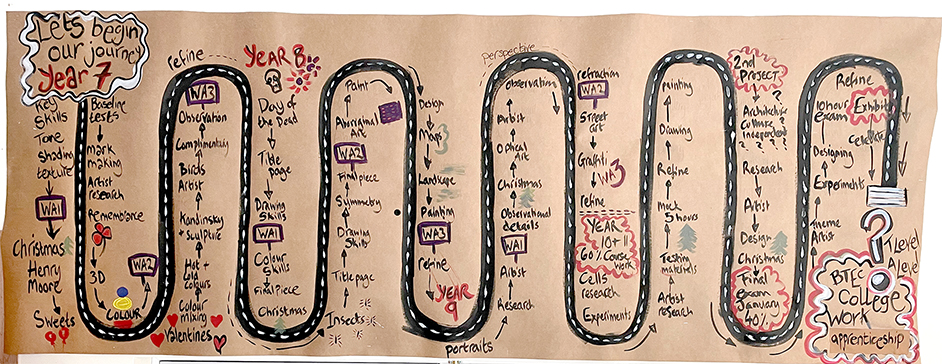 Lets begin
our journey
Year 7
Key
Skills
Tone
shading
texture
WA1
Christmas
Henry
Moore
Sweets
Baseline
tests
mark
making
Artist
research
Remembrance
3D
COLOUR
WA2
refine
WA3
Observation
Complimentary
Birds
Artist
Kandinsky
+ Sculpture
Hot +
cold
colours
Colour
mixing
Valentines
YEAR 8
Day of
the Dead
Title
page
Drawing
Skills
WA1
Colour
Skills
Final Piece
Christmas
Insects
Title page
Drawing
Skills
Symmetry
Final piece
WA2
Aboriginal
Art
Paint
Design
Maps
Landscape
Painting
WA3
Refine
YEAR
9
portraits
Research
Artist
WA1
Observational
details
Christmas
Optical
Art
Artist
Observation
perspective
refraction
WA2
Street
art
Graffiti
WA3
refine
YEAR
10+11
60% Course
work
Cells
research
Experiments
Artist
research
Testing
materials
Mock
5 hours
Refine
Drawing
painting
2nd
PROJECT
Architecture
culture ?
independent
? ? ? ? ?
Research
Artist
Design
Christmas
Final
Exam
January
40%
Theme
Artist
Experiments
Designing
10 hours
exam
Refine
Exhibit
celebrate
?
T Level
A Level
BTEC
College
WORK
apprenticeship